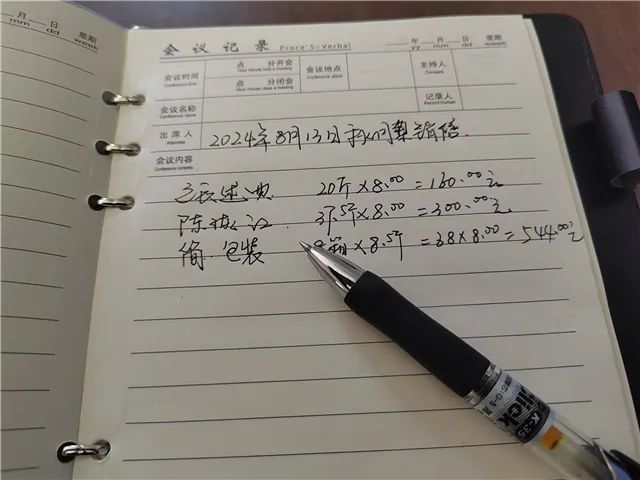 月 日 星期
mm dd week
会议记录 Proce's-Verbal 年 月 日 星期
yy mm dd week
会议时间 点 分开会 会议地点 主持人
Conference time Hour minute start a meeting Conference place Compere
点 分闭会 记录人
Hour minute close a meeting Record human
会议名称
Conference name
出席人 2024年8月13日
Attendee
会议内容
Conference contents
20斤×8.00=160.00元
×8.00=300.00元
简包装 8.5斤=68×8.00=544.00元